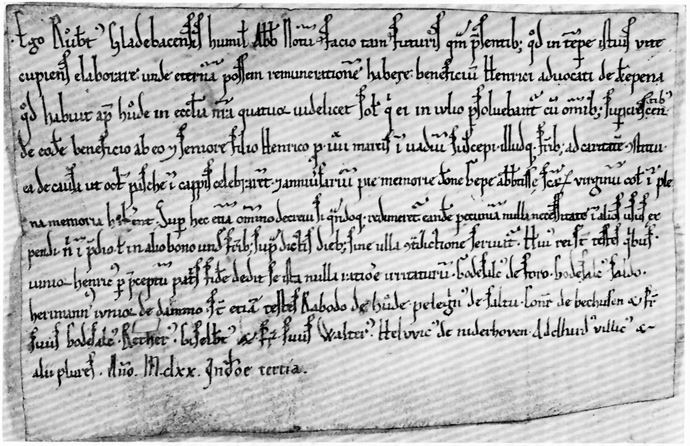 Ego Rŭbt' Gladebacensis humil' Abb' Notū facio tam futuris qm̄ p̄sentib; qd̄ in tēpe istius vite
cupiens elaborare unde eternā possem remuneratiōne habere. beneficiū Henrici advocati de
qd̄ habuit ap̄ Hv̊de in eccl'iam n̄ra quatuor videlicet sol' q̄ ei in iulio p̄solvebant' cū om̄ib;
de eod̄e beneficio ab eo ⁊ seniore filio Henrico p. viii marcis ī vadiū suscepi. illudq; frīb; ad caritatē statui
ea de causa ut oct' ī cappis celeb;arēt. ⁊ anniv̄sariū pie memorie dōne hepe abb'isse scārum virginū col' ī ple
na memoria Sup hec etiā om̄imo decrevi si qn̄doq; redimeret' eandē pecuniā nulla necessitate ī alios usus ex
pendi. n̄ ī p̄dio t' in alio bono und̄ frīb; sup̄dictis dieb; sine ulla ꝯtradictione serviat'. Hui' rei sc̄ testes qib;
iunior henric' p̄ceptum pat's fidē dedit se ista nulla ratiōe irritaturū. Godesalc' de foro. Godesalc' saldo.
hermann' iunior de dammo. sc̄ etiā testes Rabodo de Hv̊de peleg̊n' de saltu. Conr̄ de bechusen ⁊ fr̄
suus bodesalc'. Recher'. Giselbt' ⁊ fr̄ suus Walter'. Helvvic' de niderhoven. Adelhard' villic' ⁊
alii plures. Ann̄o. M.clxx. Indc̄oe tertia.